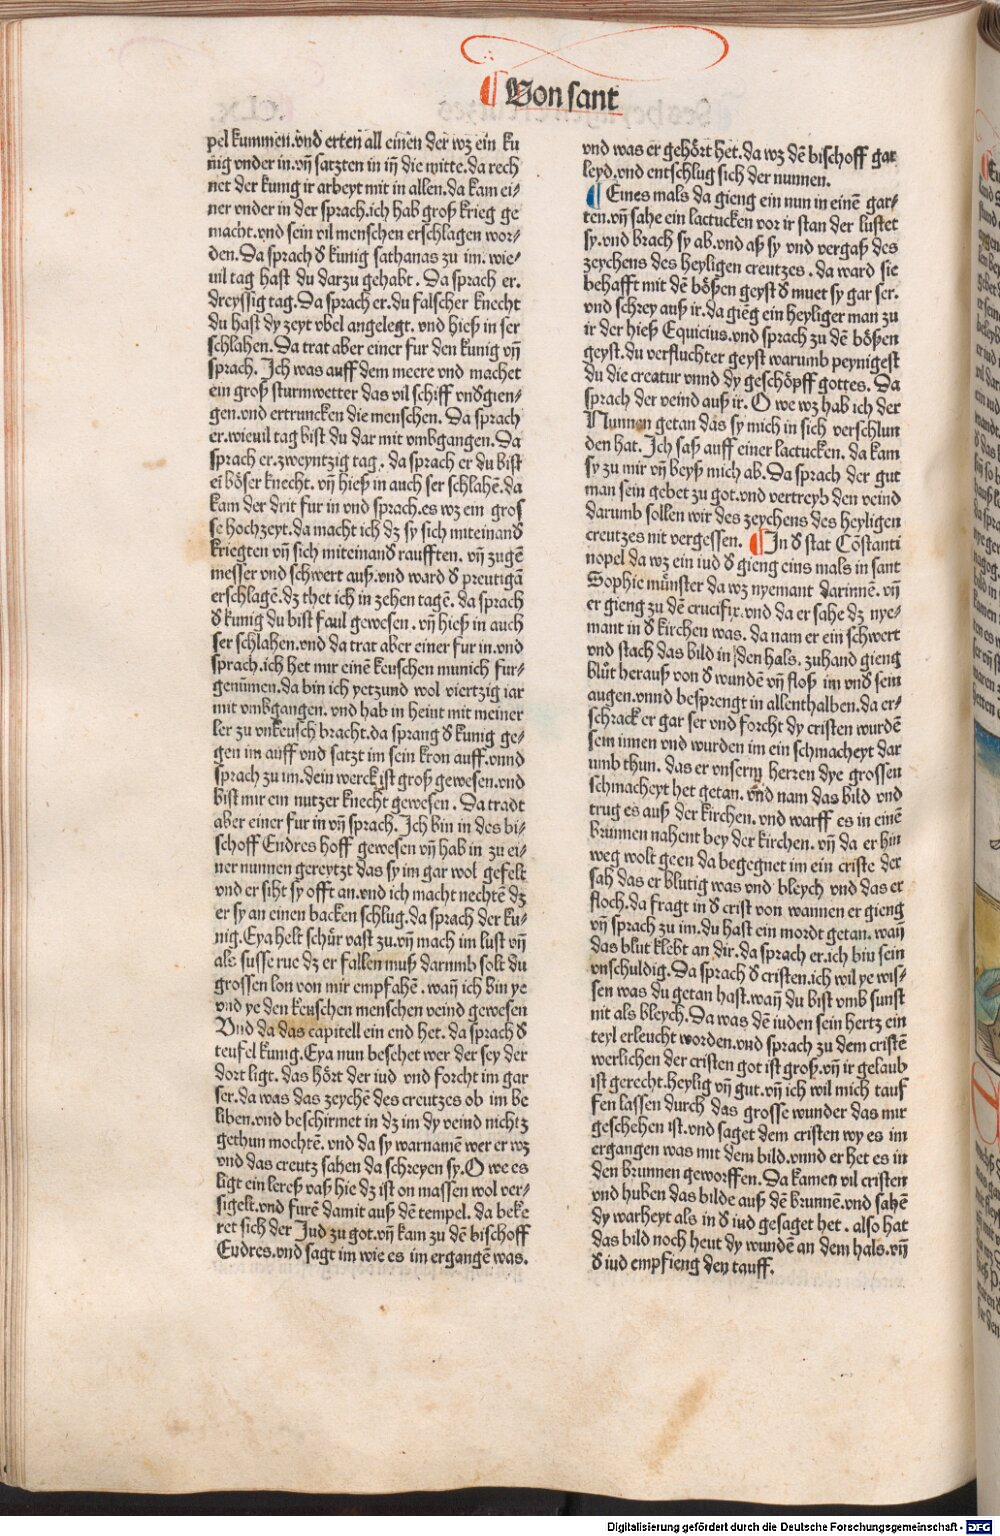 ¶ Von sant
pel kummen.vnd erten all einen der wz ein ku
nig vnder in.vñ satzten in iñ die mitte.da rech
net der kunig ir arbeyt mit in allen.da kam ei⸗
ner vnder in der sprach.ich hab groß krieg ge
macht.vnd sein vil menschen erschlagen wor⸗
den. Da sprach d kunig sathanas zu im. wie⸗
uil tag hast du darzu gehabt. Da sprach er.
dreyssig tag. Da sprach er.du falscher knecht
du hast dy zeyt vbel angelegt. vnd hieß in ser
schlahen. Da trat aber einer fur den kunig vñ
sprach. Ich was auff dem meere vnd machet
ein groß sturmwetter das vil schiff vndgien⸗
gen.vnd ertruncken die menschen. Da sprach
er.wieuil tag bist du dar mit vmbgangen. Da
sprach er.zweyntzig tag. da sprach er du bist
ei böser knecht. vñ hieß in auch ser schlahē.da
kam der drit fur in vnd sprach.es wz ein gros
se hochzeyt.da macht ich dz sy sich miteinand
kriegten vñ sich miteinand raufften. vñ zugē
messer vnd schwert auß.vnd ward d preutigā
erschlagē.dz thet ich in zehen tagē. da sprach
d kunig du bist faul gewesen. vñ hieß in auch
ser schlahen.vnd da trat aber einer fur in.vnd
sprach.ich het mir einē keuschen munich fur⸗
genūmen.da bin ich yetzund wol viertzig iar
mit vmbgangen. vnd hab in heint mit meiner
ler zu vnkeusch bracht.da sprang d kunig ge⸗
gen im auff vnd satzt im sein kron auff.vnnd
sprach zu im.dein werck ist groß gewesen.vnd
bist mir ein nutzer knecht gewesen. Da tradt
aber einer fur in vñ sprach. Ich bin in des bi⸗
schoff Endres hoff gewesen vñ hab in zu ei⸗
ner nunnen gereytzt das sy im gar wol gefelt
vnd er siht sy offt an.vnd ich macht nechtē dz
er sy an einen backen schlug.da sprach der ku⸗
nig. Eya helt schür vast zu.vñ mach im lust vñ
als susse rue dz er fallen muß darumb solt du
grossen lon von mir empfahē. wañ ich bin ye
vnd ye den keuschen menschen veind gewesen
Vnd da das capitell ein end het. da sprach d
teufel kunig. Eya nun besehet wer der sey der
dort ligt. das hört der iud vnd forcht im gar
ser.da was das zeychē des creutzes ob im be
liben.vnd beschirmet in dz im dy veind nichtz
gethun mochtē. vnd da sy warnamē wer er wz
vnd das creutz sahen da schreyen sy. O we es
ligt ein lereß vaß hie dz ist on massen wol ver⸗
sigelt.vnd furē damit auß dē tempel. da beke
ret sich der Jud zu got.vñ kam zu dē bischoff
Endres.vnd sagt im wie es im ergangē was.
vnd was er gehört het.da wz dē bischoff gar
leyd.vnd entschlug sich der nunnen.
¶ Eines mals da gieng ein nun in einē gar⸗
ten.vñ sahe ein lactucken vor ir stan der lustet
sy.vnd brach sy ab.vnd aß sy vnd vergaß des
zeychens des heyligen creutzes. da ward sie
behafft mit dē bößen geyst d muet sy gar ser.
vnd schrey auß ir.da giēg ein heyliger man zu
ir der hieß Equicius.vnd sprach zu dē bößen
geyst.du verfluchter geyst warumb peynigest
du die creatur vnnd dy geschöpff gottes. Da
sprach der veind auß ir. O we wz hab ich der
Nunnen getan das sy mich in sich verschlun
den hat. Ich saß auff einer lactucken. da kam
sy zu mir vñ beyß mich ab. Da sprach der gut
man sein gebet zu got.vnd vertreyb den veind
darumb sollen wir des zeychens des heyligen
creutzes nit vergessen. ¶ In d stat Cōstanti
nopel da wz ein iud d gieng eins mals in sant
Sophie münster da wz nyemant darinnē. vñ
er gieng zu dē crucifix.vnd da er sahe dz nye⸗
mant in d kirchen was. da nam er ein schwert
vnd stach das bild in den hals. zuhand gieng
blůt herauß von d wundē vñ floß im vnd sein
augen.vnnd besprengt in allenthalben.da er⸗
schrack er gar ser vnd forcht dy cristen wurdē
sein innen vnd wurden im ein schmacheyt dar
umb thun. das er vnserm herren dye grossen
schmacheyt het getan. vnd nam das bild vnd
trug es auß der kirchen.vnd warff es in einē
brunnen nahent bey der kirchen. vñ da er hin
weg wolt geen da begegnet im ein criste der
sah das er blutig was vnd bleych vnd das er
floch.da fragt in d crist von wannen er gieng
vñ sprach zu im.du hast ein mordt getan. wañ
das blut klebt an dir.da sprach er.ich bin sein
vnschuldig. Da sprach d cristen.ich wil ye wis⸗
sen was du getan hast.wañ du bist vmb sunst
nit als bleych. Da was dē iuden sein hertz ein
teyl erleucht worden.vnd sprach zu dem cristē
werlichen der cristen got ist groß.vñ ir gelaub
ist gerecht.heylig vñ gut.vñ ich wil mich tauf
fen lassen durch das grosse wunder das mir
geschehen ist.vnd saget dem cristen wy es im
ergangen was mit dem bild.vnnd er het es in
den brunnen geworffen. Da kamen vil cristen
vnd huben das bilde auß dē brunnē.vnd sahē
dy warheyt als in d iud gesaget het. also hat
das bild noch heut dy wundē an dem hals.vñ
d iud empfieng den tauff.
Digitalisierung gefördert durch die Deutsche Forschungsgemeinschaft - DFG